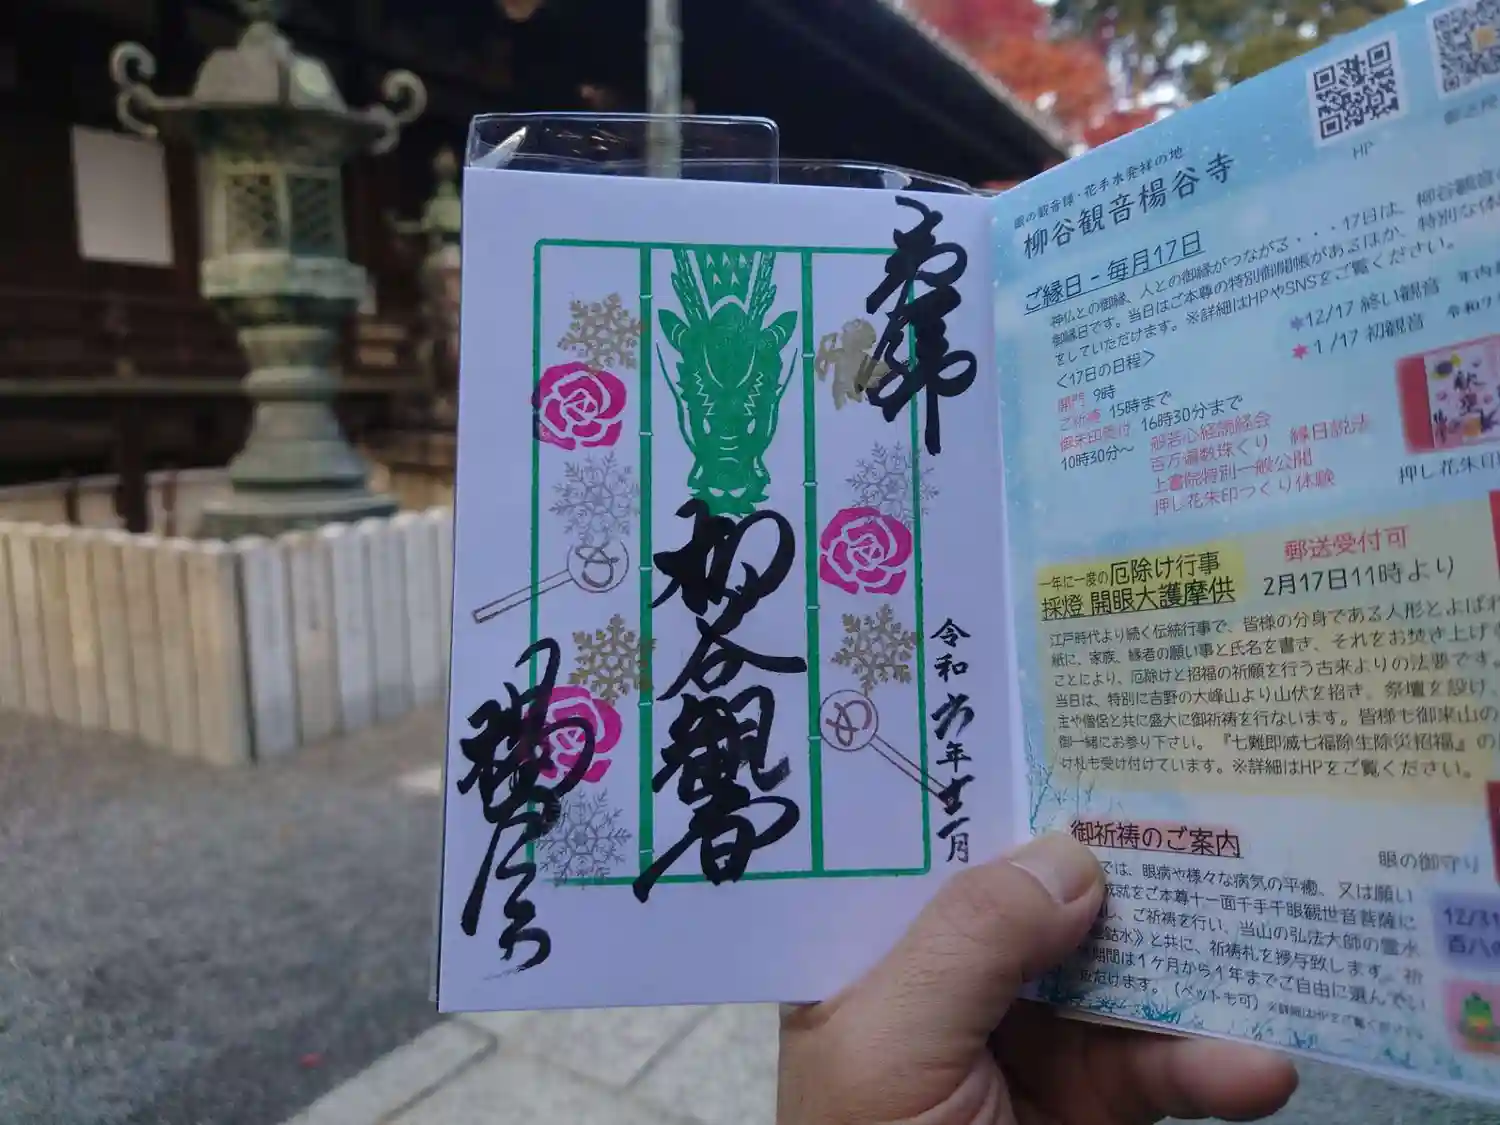 奉拝
柳谷観音
楊谷寺
令和六年十二月
め
め
HP
眼の観音様・花手水発祥の地
柳谷観音楊谷寺
ご縁日-毎月17日
神仏との御縁、人との御縁がつながる・・・17日は、柳谷観音
御縁日です。当日はご本尊の特別御開帳があるほか、特別な体
をしていただけます。※詳細はHPやSNSをご覧ください。
<17日の日程>
開門 9時
ご祈祷 15時まで
御朱印受付 16時30分まで
10時30分～ 般若心経読経会
百万遍数珠くり 縁日説法
上書院特別一般公開
押し花朱印づくり体験
12/17 終い観音 年内
1/17 初観音 令和
押し花朱印
一年に一度の厄除け行事
採燈 開眼大護摩供
郵送受付可
2月17日11時より
江戸時代より続く伝統行事で、皆様の分身である人形とよばれ
紙に、家族、縁者の願い事と氏名を書き、それをお焚き上げ
ことにより、厄除けと招福の祈願を行う古来よりの法要です。
当日は、特別に吉野の大峰山より山伏を招き、祭壇を設け、
主や僧侶と共に盛大に御祈祷を行ないます。皆様も御来山の
御一緒にお参り下さい。『七難即滅七福即生除災招福』の
け札も受け付けています。※詳細はHPをご覧ください。
御祈祷のご案内
では、眼病や様々な病気の平癒、又は願い
成就をご本尊十一面千手千眼観世音菩薩に
し、ご祈祷を行い、当山の弘法大師の霊水
鈷水》と共に、祈祷札を授与致します。祈
期間は1ヶ月から1年までご自由に選んでい
ただけます。(ペットも可)※詳細はHPをご覧ください
眼の御守り
12/31
百八